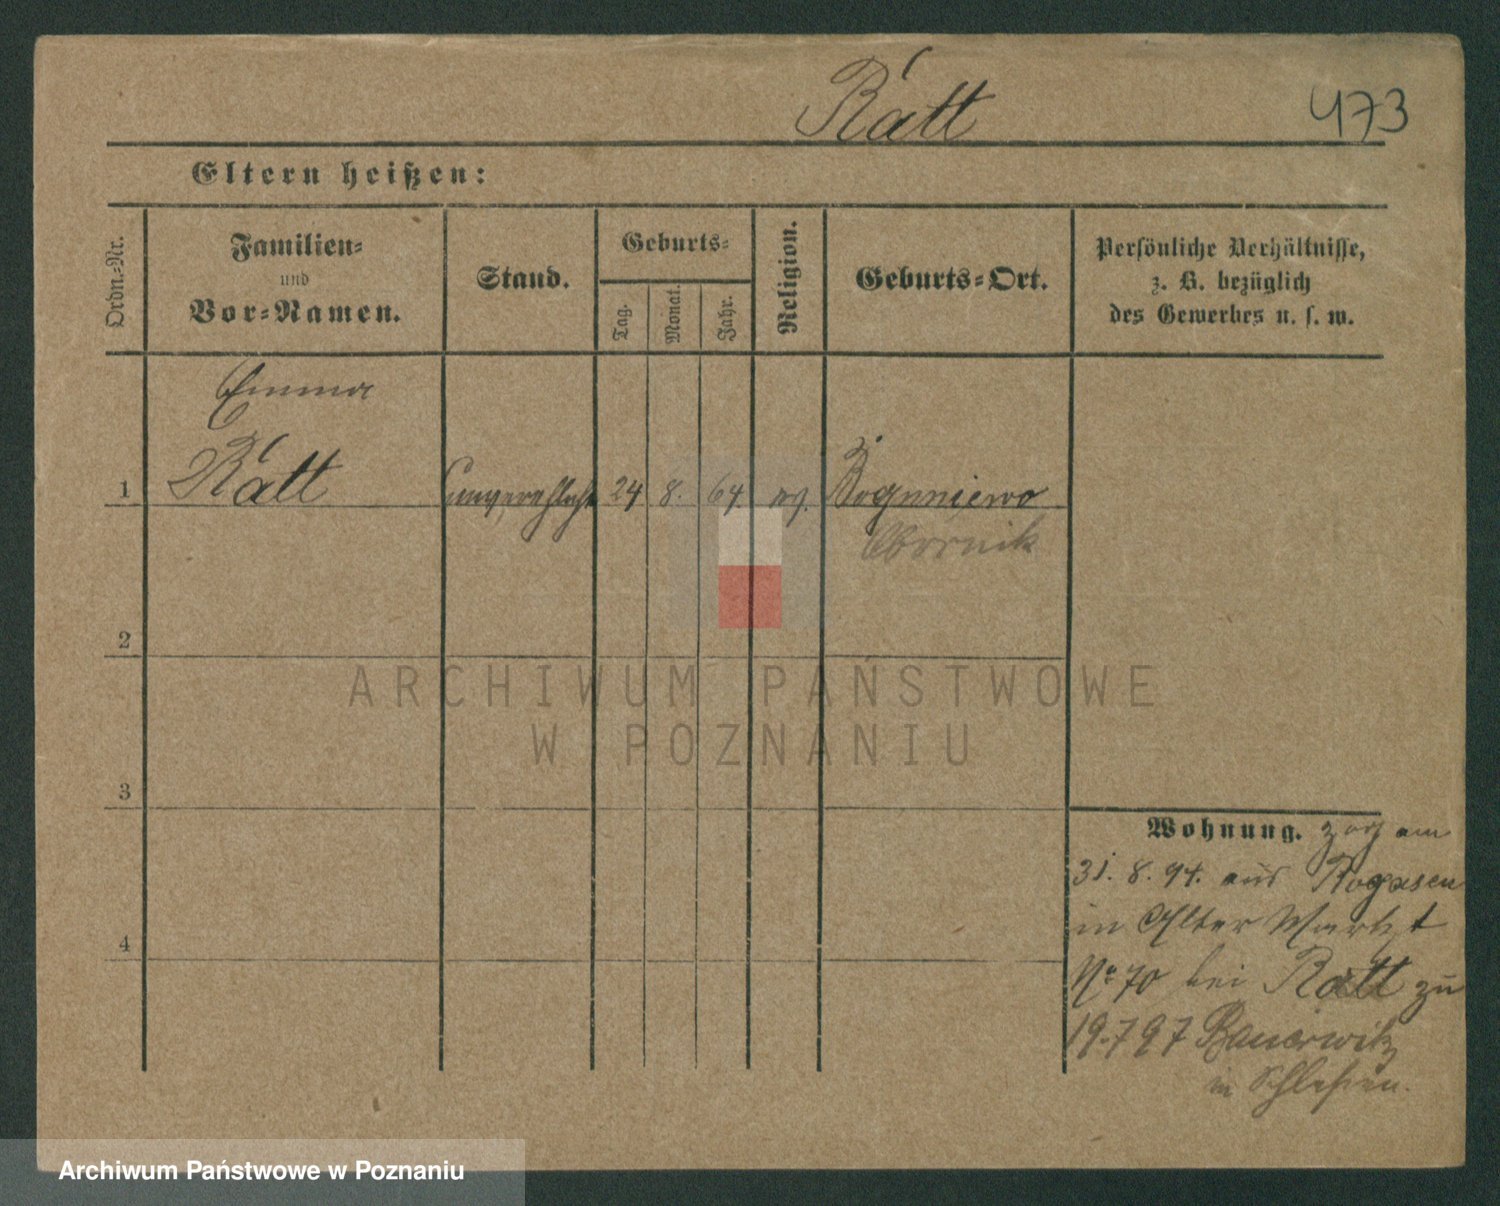 Ratt 473
Eltern heißen:
Ordn.-Nr.
Familien-
und
Vor-Namen.
Stand.
Geburts-
Tag.
Monat.
Jahr.
Religion.
Geburts-Ort.
Persönliche Verhältnisse,
z. B. bezüglich
des Gewerbes u. s. w.
Emma
1 Ratt unverehlicht 24 8. 64. ev. Boguniewo
Obornik
2
3
4
Wohnung. zog am
31. 8. 94. aus Rogasen
in Alter Markt
No 70 bei Ratt zu
19.7 97 Bauerwitz
in Schlesien.
ARCHIWUM PAŃSTWOWE
W POZNANIU
Archiwum Państwowe w Poznaniu